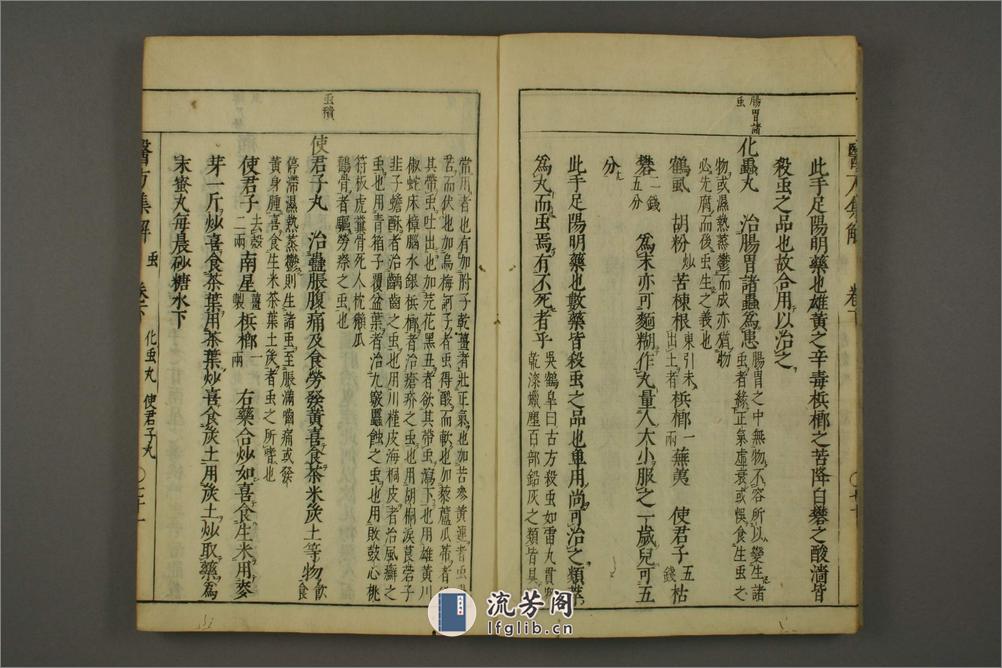 腸胃諸
虫
此手足陽明藥也雄黃之辛毒梹榔之苦降白礬之酸濇皆
殺虫之品也故合用以治之
化蟲丸　治腸胃諸蟲為患
腸胃之中無物不容所以變生諸
虫者緣正氣虛衰或悞食生虫之
物或濕熱蒸鬱而成亦猶物
必先腐而後虫生之義也
鶴虱　胡粉炒　苦棟根
東引未
出土者
梹榔一兩　蕪荑　使君子五錢　枯
礬一錢五分　為末亦可麵糊作丸量人大小服之一歲兒可五
分
此手足陽明藥也數藥皆殺虫之品也單用尚可治之類聚
為丸而虫焉有不死者乎
吳鶴皐曰古方殺虫如雷丸貫
乾漆蠟塵百部鉛灰之類皆其
醫方集解
虫積
常用者也有加附子乾薑者壯正氣也加苦參黃連者虫
苦而伏也加烏梅訶子者虫得酸而軟也加藜蘆瓜蒂者
其帶虫吐出也加芫花黑丑者欲其帶虫瀉下也用雄黃川
椒蛇床樟腦水銀梹榔者治瘡疥之虫也用胡桐淚莨菪子
韭子蟾酥者治齲齒之虫也用川槿皮海桐皮者治風癬之
虫也用青箱子覆盆葉者治九竅䘌蝕之虫也用敗鼓心桃
符板虎糞骨死人枕獺爪
鸛骨者驅勞瘵之虫也
使君子丸　治蠱脹腹痛及食勞發黃喜食茶米炭土等物
飲食
停滯濕熱蒸鬱則生諸虫至脹滿嚙痛或發
黃身腫喜食生米茶葉土炭者虫之所嗜也
使君子去殼二兩　南星薑製　梹榔一兩　右藥合炒如喜食生米用麥
芽一斤炒喜食茶葉用茶葉炒喜食炭土用炭土炒取藥為
末蜜丸每晨砂糖水下
醫方集解　虫　化虫丸　使君子丸
流芳阁
lfglib.cn